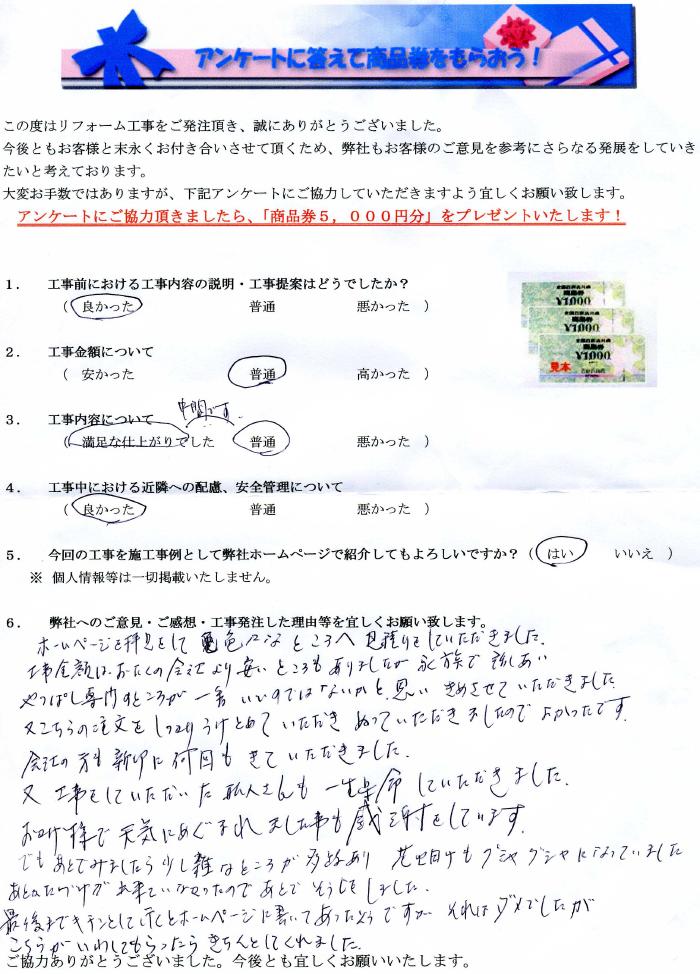 アンケートに答えて商品券をもらおう！
この度はリフォーム工事をご発注頂き、誠にありがとうございました。
今後ともお客様と末永くお付き合いさせて頂くため、弊社もお客様のご意見を参考にさらなる発展をしていき
たいと考えております。
大変お手数ではありますが、下記アンケートにご協力していただきますよう宜しくお願い致します。
アンケートにご協力頂きましたら、「商品券５，０００円分」をプレゼントいたします！
１． 工事前における工事内容の説明・工事提案はどうでしたか？
（ 良かった 普通 悪かった ）
¥1,000
¥1,000
¥1,000
見本
２． 工事金額について
（ 安かった 普通 高かった ）
３． 工事内容について
中間です。
（ 満足な仕上がりでした 普通 悪かった ）
４． 工事中における近隣への配慮、安全管理について
（ 良かった 普通 悪かった ）
５． 今回の工事を施工事例として弊社ホームページで紹介してもよろしいですか？（ はい いいえ ）
※ 個人情報等は一切掲載いたしません。
６． 弊社へのご意見・ご感想・工事発注した理由等を宜しくお願い致します。
ホームページを拝見をして 色々なところへ見積りをしていただきました。
工事金額は、おたくの会社より安いところもありましたが 家族で話しあい
やっぱし専門のところが一番いいのではないかと思い きめさせていただきました
又こちらの注文をしっかりうけとめていただき ぬっていただきましたのでよかったです。
会社の方も 何回もきていただきました。
又 工事をしていただいた職人さんも 一生懸命していただきました。
お蔭様で天気にめぐまれました事も感謝をしています。
でもあとでみましたら少し雑なところが多々あり 花畑もグシャグシャになっていました
あとかたづけが出来ていなかったのであとでそうじをしました。
最後までキチンとして行くとホームページに書いてあったようですが それはダメでしたが
こちらがいわしてもらったらきちんとしてくれました。
ご協力ありがとうございました。今後とも宜しくお願いいたします。